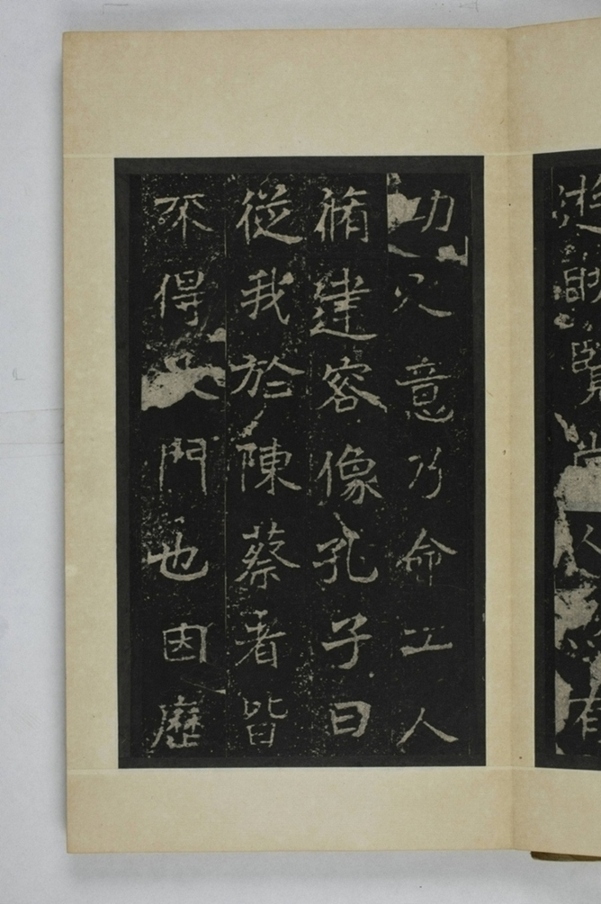 覽尚
有
功之意乃命工人
脩建容像孔子曰
從我於陳蔡者皆
不得門也因歷